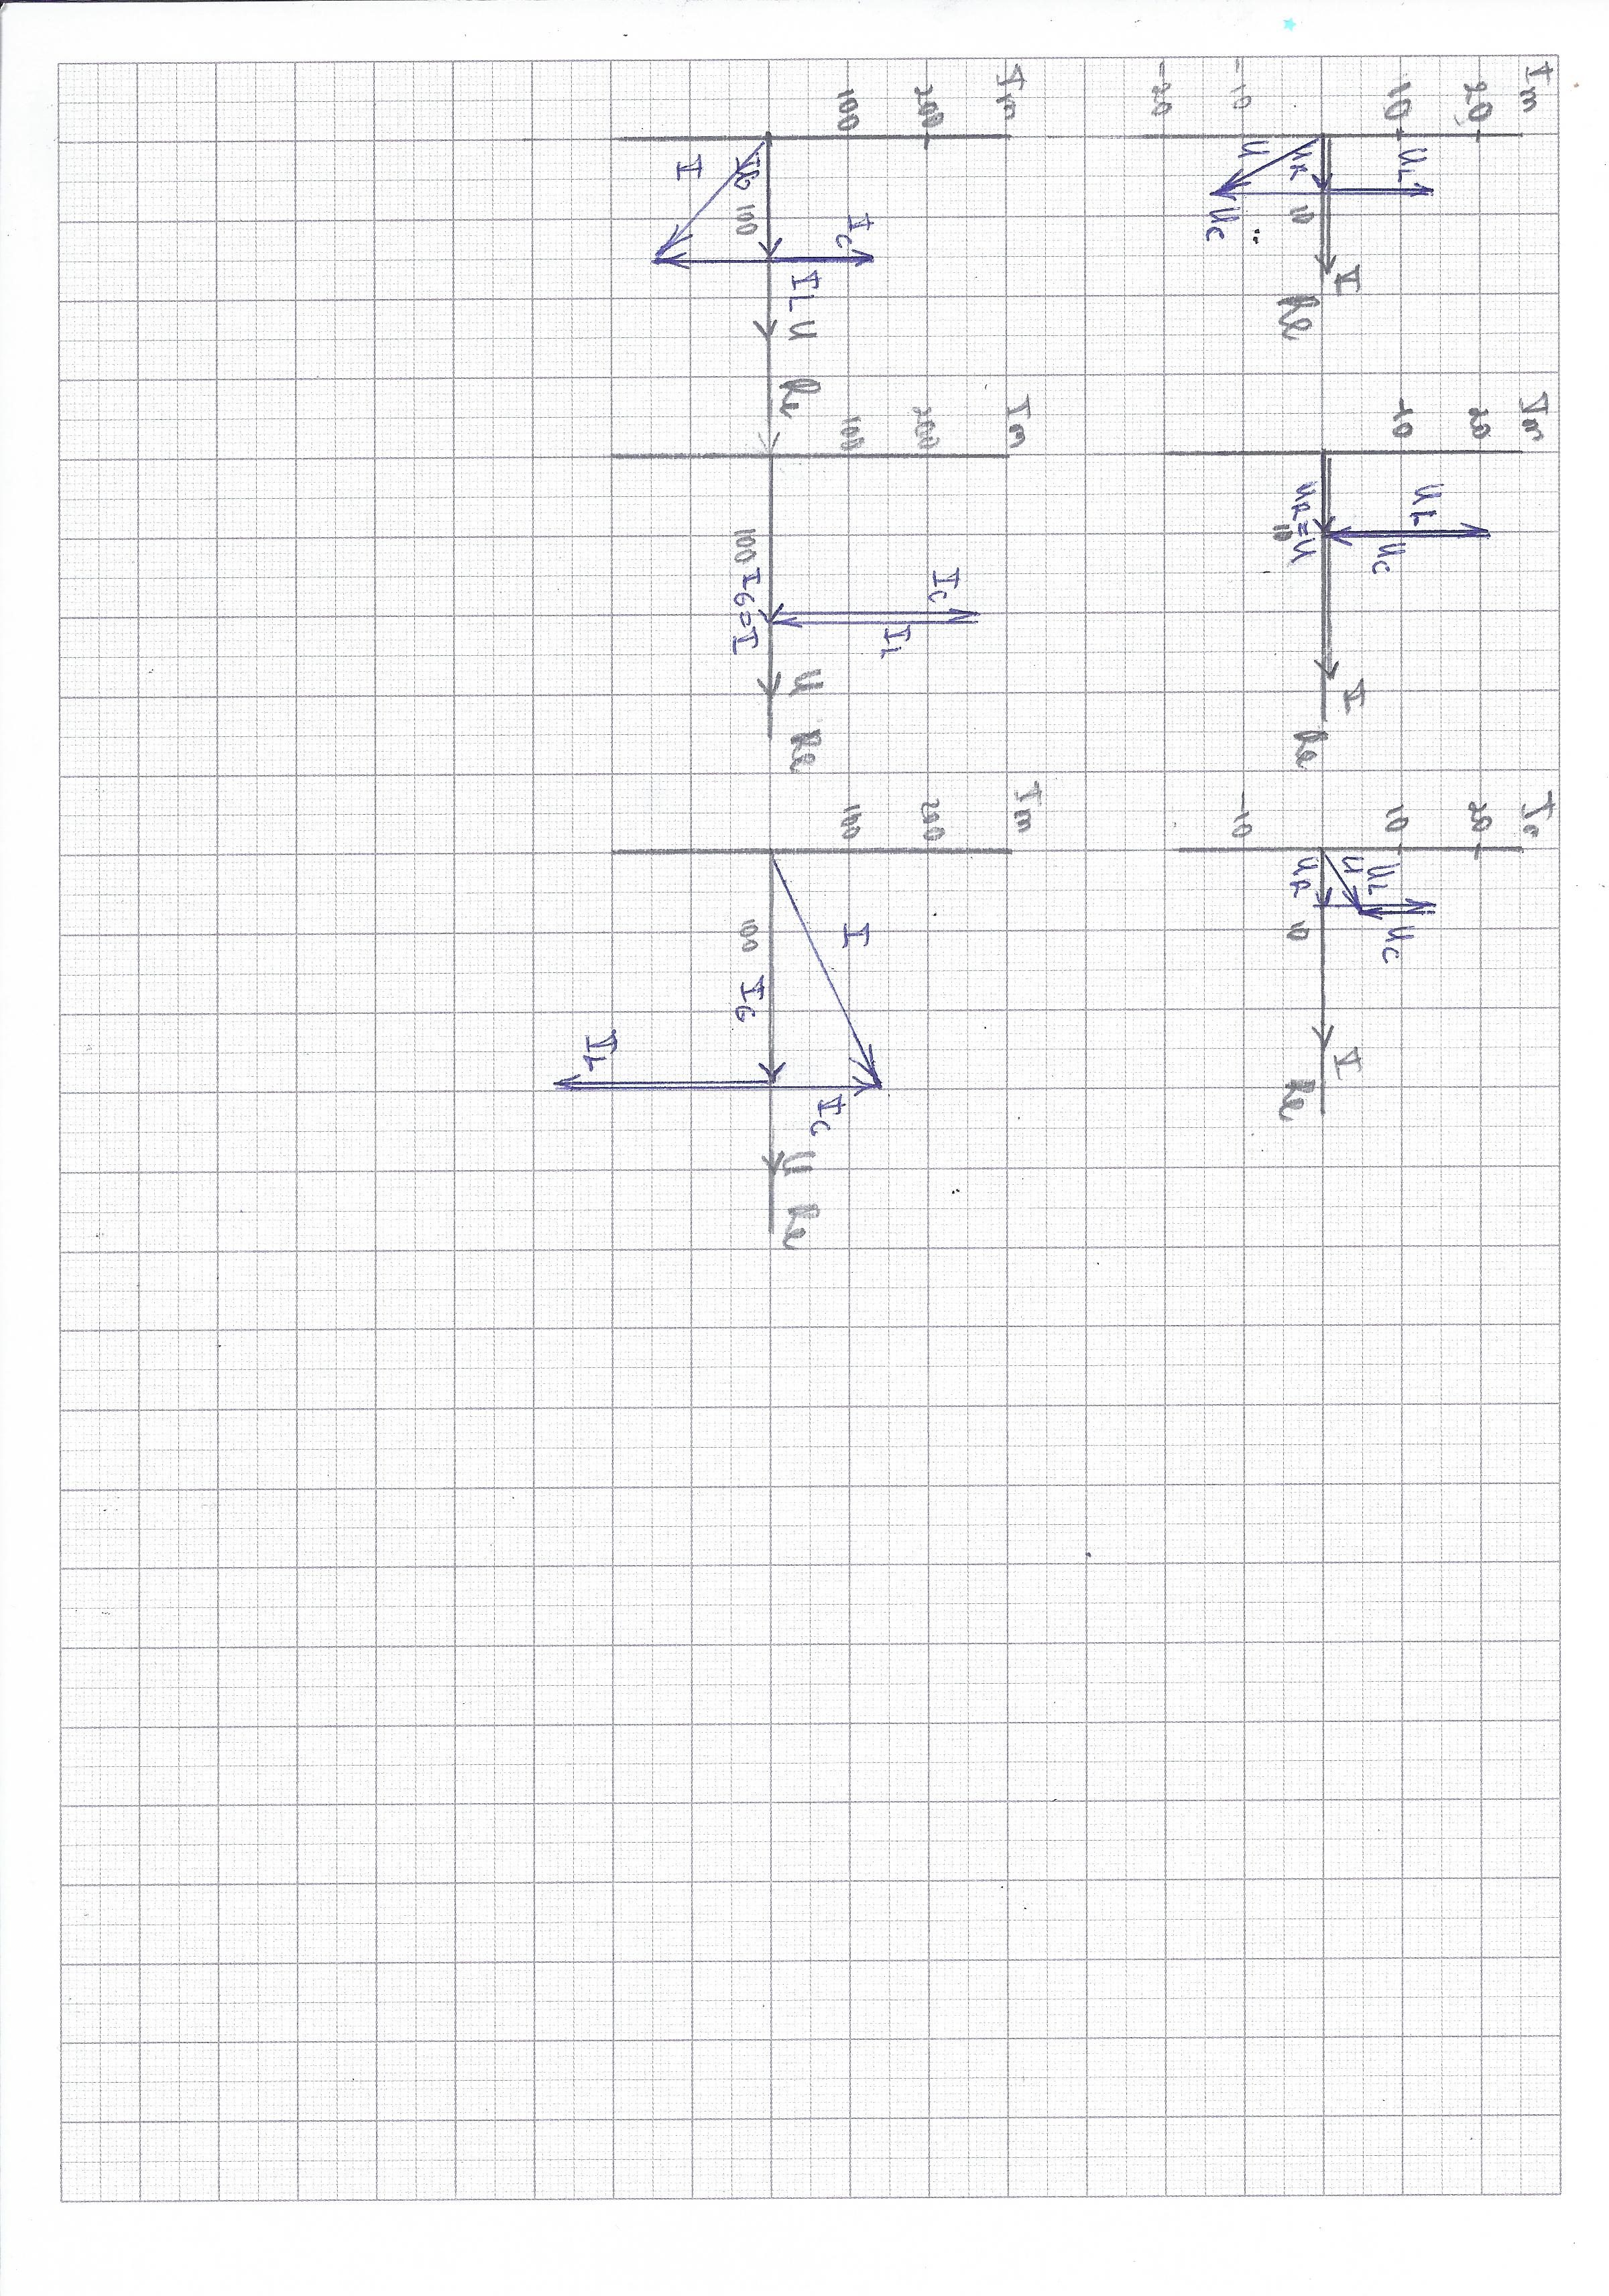 Im
20
10
-10
-20
UL
UR
U
UC
10
I
Re
Im
20
10
UL
UC
UR=U
10
I
Re
Im
20
10
-10
UL
U
UR
UC
10
I
Re
Im
200
100
IG
I
100
IC
IL
U
Re
Im
200
100
100
IC
IL
IG=I
U
Re
Im
200
100
I
100
IG
IL
IC
U
Re